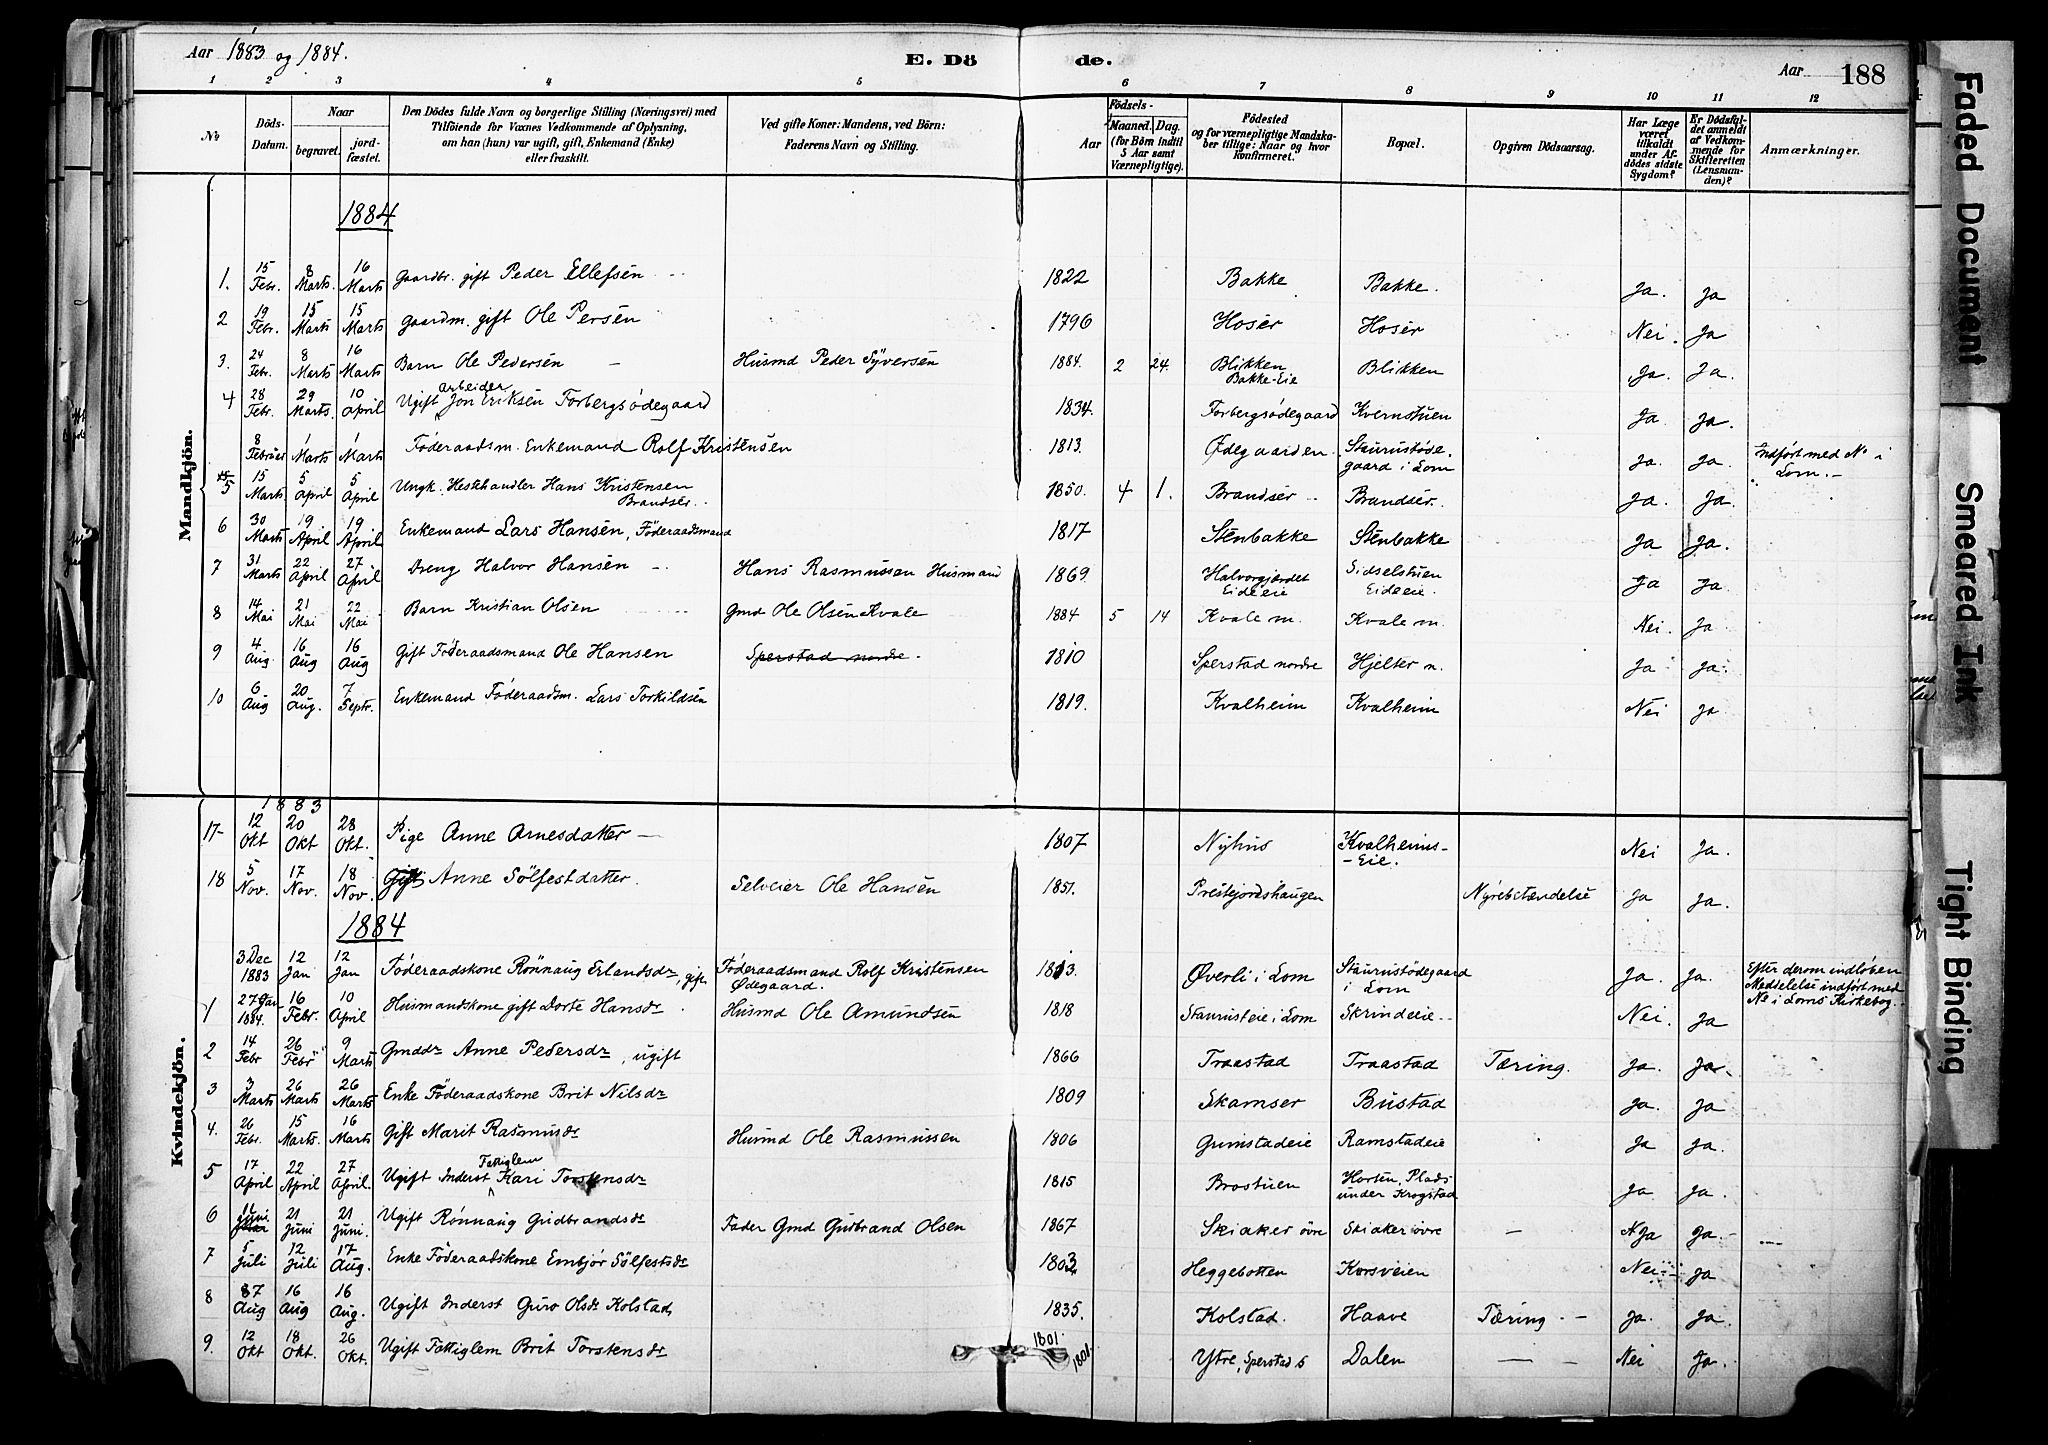 Aar 1883 og 1884. E. Dö de. Aar 188
1 2 3 4 5 6 7 8 9 10 11 12
No Döds-Datum. Naar begravet. jord-fæstet. Den Dödes fulde Navn og borgerlige Stilling (Næringsvei) med Tilföiende for Voxnes Vedkommende af Oplysning, om han (hun) var ugift, gift, Enkemand (Enke) eller fraskilt. Ved gifte Koner: Mandens, ved Börn: Faderens Navn og Stilling. Aar Födsels- Maaned. Dag. (for Börn indtil 5 Aar samt Værnepligtige). Födested og for værnepligtige Mandskaber tillige: Naar og hvor konfirmeret. Bopæl. Opgiven Dödsaarsag. Har Læge været tilkaldt under Afdödes sidste Sygdom? Er Dödsfaldet anmeldt af Vedkommende for Skifteretten (Lensmanden)? Anmærkninger.
Mandkjön.
1884
1. 15 Febr. 8 Marts. 16 Marts Gaardbr. gift Peder Ellefsen 1822 Bakke Bakke. Ja. Ja
2 19 Febr. 15 Marts 15 Marts Gaardm. gift Ole Persen 1796 Hosør Hosør Nei. Ja
3. 24 Febr. 8 Marts 16 Marts Barn Ole Pedersen Husmd Peder Syversen 1884. 2 24. Blikken Bakke-Eie Blikken Ja. Ja.
4 28 Febr. 29 Marts. 10 April Ugift arbeider Jon Eriksen Forbergsødegaard 1834. Forbergsødegaard Kvernstuen Ja Ja.
8 Februar 1 Marts 1 Marts Föderaadsm. Enkemand Rolf Kristensen 1813. Ødegaarden Staurustöde-gaard i Lom Ja. Ja. Indført med No i Lom.
5 15 Marts 5 April 5 April Ungk. Hestehandler Hans Kristensen Brandsér. 1850. 4 1. Brandsér Brandsér. Ja. Ja.
6 30 Marts 19 April 19 April Enkemand Lars Hansen, Föderaadsmand 1817 Stenbakke Stenbakke Ja Ja.
7 31 Marts 22 April 27 April Dreng Halvor Hansen Hans Rasmussen Husmand 1869. Halvorgjerdet Eideeie Sidselstuen Eideeie. Ja Ja.
8 14 Mai 21 Mai 22 Mai Barn Kristian Olsen Gmd Ole Olsen Kvale 1884 5 14 Kvale m. Kvale m. Nei. Ja
9 4 Aug. 16 Aug 16 Aug Gift Föderaadsmand Ole Hansen Sperstad nordre. 1810 Sperstad nordre Hjelter n. Ja Ja.
10 6 Aug 20 Aug. 7 Septr. Enkemand Föderaadsm. Lars Torkildsen 1819. Kvalheim Kvalheim Nei Ja
Kvindekjön.
1883
17 12 Okt 20 Okt 28 Okt. Pige Anne Arnesdatter 1807 Nyhus Kvalheims-Eie. Nei Ja.
18 5 Nov. 17 Nov. 18 Nov. Gift Anne Sölfestdatter. Selveier Ole Hansen 1851. Prestejordshaugen Nyrebetændelse Ja Ja.
1884
3 Dec 1883 12 Jan 12 Jan Föderaadskone Rönnaug Erlandsdr, gift Föderaadsmand Rolf Kristensen Ødegaard. 1813. Øverli i Lom Staurustödegaard i Lom Ja. Ja. Efter derom indløben Meddelelse indført med No i Loms Kirkebog.
1 27 Jan 1884. 16 Febr. 10 April Husmandskone gift Dorte Hansdr. Husmd Ole Amundsen 1818 Staurusteie i Lom Skrindeie Nei. Ja
2 14 Febr 26 Febr 9 Marts Gmddr Anne Pedersdr, ugift 1866 Traastad Traastad Tæring. Ja. Ja.
3 3 Marts 26 Marts 26 Marts Enke Föderaadskone Brit Nilsdr 1809 Skamser Bustad Ja. Ja
4. 26 Febr. 15 Marts. 16 Marts Gift Marit Rasmusdr Husmd Ole Rasmussen 1806 Grimstadeie Ramstadeie Ja Ja.
5 17 April 22 April 27 April. Ugift Inderst Fattiglem Kari Torstensdr 1815 Brostuen Horten, Plads under Krogstad Ja Ja.
6 Juni. 21 Juni 21 Juni. Ugift Rönnaug Gudbrandsdr Fader Gmd Gudbrand Olsen 1867 Skiaker övre Skiaker övre — Ja Ja.
7 5 Juli 12 Juli 17 Aug. Enke Föderaadskone Embjør Sölfestsdr 1803 Heggebotten Korsveien Nei Ja
8 7 Aug 16 Aug 16 Aug. Ugift Inderst Guro Olsdr Kolstad 1835. Kolstad. Haave Tæring. Ja. Ja.
9. 12 Okt 18 Okt. 26 Okt. Ugift Fattiglem Brit Torstensdr 1801. 1801. Ytre Sperstad s Dalen — Nei Ja.
Faded Document
Smeared Ink
Tight Binding